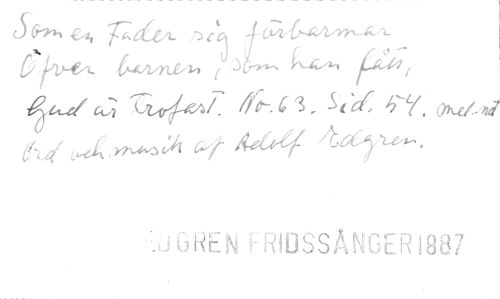 Som en Fader sig förbarmar
Öfver barnen, som han fått,
Gud är Trofast. No. 63. Sid. 54. med not
Ord och musik af Adolf Edgren.
EDGREN FRIDSSÅNGER 1887